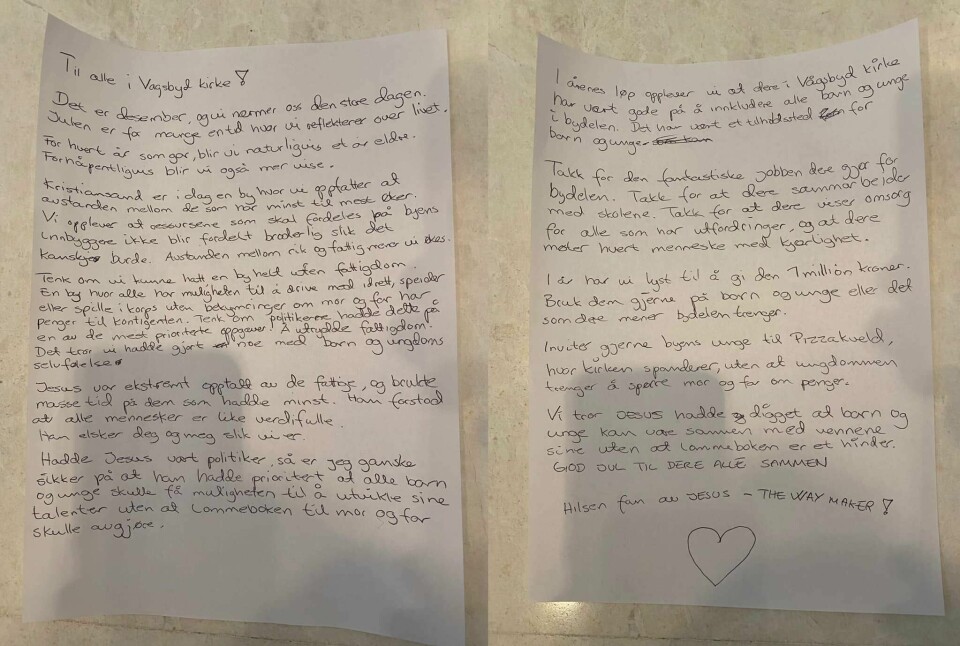 Til alle i Vågsbyd kirke!
Det er desember, og vi nærmer oss den store dagen.
Julen er for mange en tid hvor vi reflekterer over livet.
For hvert år som går, blir vi naturligvis et år eldre.
Forhåpentligvis blir vi også mer vise.
Kristiansand er i dag en by hvor vi oppfatter at
avstanden mellom de som har minst til mest øker.
Vi opplever at ressursene som skal fordeles på byens
innbyggere ikke blir fordelt broderlig slik det
kanskje burde. Avstanden mellom rik og fattig mener vi økes.
Tenk om vi kunne hatt en by helt uten fattigdom.
En by hvor alle har muligheten til å drive med idrett, speider
eller spille i korps uten bekymringer om mor og far har
penger til kontigenten. Tenk om politikerene hadde dette på
en av de mest prioriterte oppgaver! Å utrydde fattigdom.
Det tror vi hadde gjort noe med barn og ungdoms
selvfølelse.
Jesus var ekstremt opptatt av de fattige, og brukte
masse tid på dem som hadde minst. Han forstod
at alle mennesker er like verdifulle.
Han elsker deg og meg slik vi er.
Hadde Jesus vært politiker, så er jeg ganske
sikker på at han hadde prioritert at alle barn
og unge skulle få muligheten til å utvikle sine
talenter uten at lommeboken til mor og far
skulle avgjøre.
I årenes løp opplever vi at dere i Vågsbyd kirke
har vært gode på å innkludere alle barn og unge
i bydelen. Det har vært et tilholdssted for
barn og unge.
Takk for den fantastiske jobben dere gjør for
bydelen. Takk for at dere sammarbeider
med skolene. Takk for at dere viser omsorg
for alle som har utfordringer, og at dere
møter hvert menneske med kjærlighet.
I år har vi lyst til å gi den 1 million kroner.
Bruk dem gjerne på barn og unge eller det
som dere mener bydelen trenger.
Inviter gjerne byens unge til Pizzakveld,
hvor kirken spanderer, uten at ungdommen
trenger å spørre mor og far om penger.
Vi tror JESUS hadde digget at barn og
unge kan være sammen med vennene
sine uten at lommeboken er et hinder.
GOD JUL TIL DERE ALLE SAMMEN
Hilsen fan av JESUS - THE WAY MAKER!